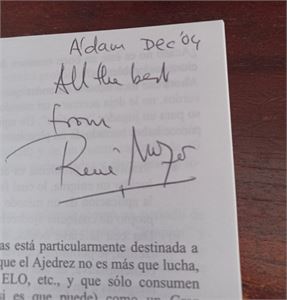 A'dam Dec '04
All the best
from
René
as está particularmente destinada a
que el Ajedrez no es más que lucha,
ELO, etc., y que sólo consumen
si es que puede) como un